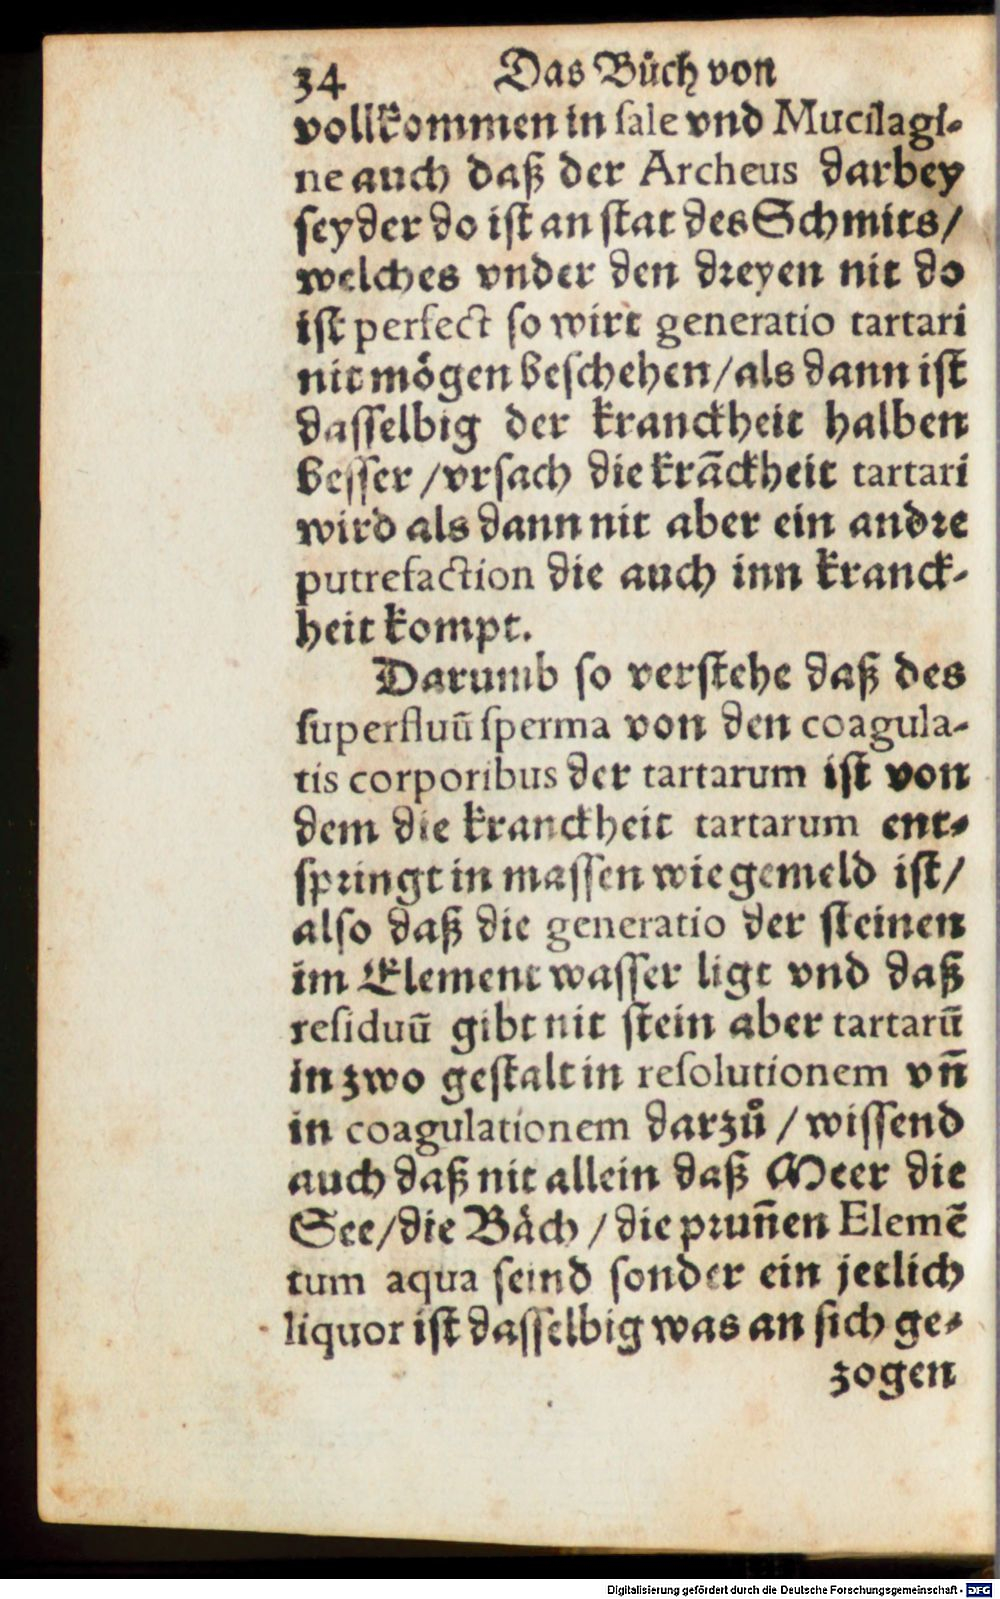 34 Das Bůch von
vollkommen in ſale vnd Mucilagi-
ne auch daß der Archeus darbey
ſey der do iſt an ſtat des Schmits/
welches vnder den dreyen nit do
iſt perfect ſo wirt generatio tartari
nit mögen beſchehen/als dann iſt
daſſelbig der kranckheit halben
beſſer/vrſach die krāckheit tartari
wird als dann nit aber ein andre
putrefaction die auch inn kranck-
heit kompt.
Darumb ſo verſtehe daß des
ſuperfluū ſperma von den coagula-
tis corporibus der tartarum iſt von
dem die kranckheit tartarum ent-
ſpringt in maſſen wie gemeld iſt/
alſo daß die generatio der ſteinen
im Element waſſer ligt vnd daß
reſiduū gibt nit ſtein aber tartarū
in zwo geſtalt in reſolutionem vn̄
in coagulationem darzů/wiſſend
auch daß nit allein daß Meer die
See/die Bäch/die prun̄en Elemē
tum aqua ſeind ſonder ein jetlich
liquor iſt daſſelbig was an ſich ge-
zogen
Digitalisierung gefördert durch die Deutsche Forschungsgemeinschaft - DFG